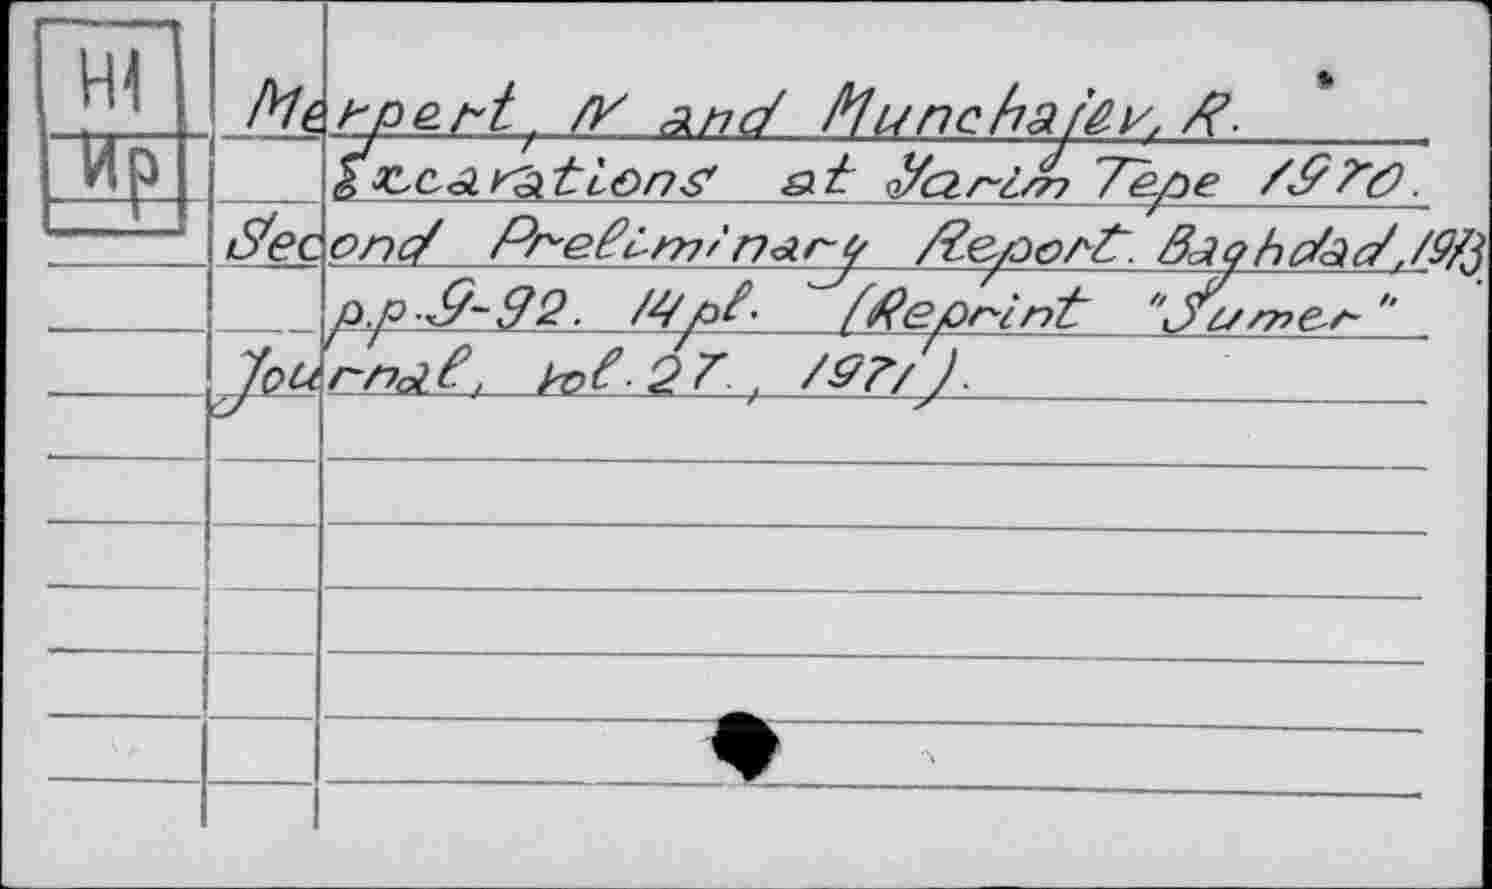 Н1
Ир
Merpert, N and Munchajev, R.
Excavations at Yarim Tepe 1970.
Second Preliminary Report. Baghdad, 1973
p.p. 9-92. 14 pl. (Reprint "Sumer"
Journal, vol. 27., 1971).